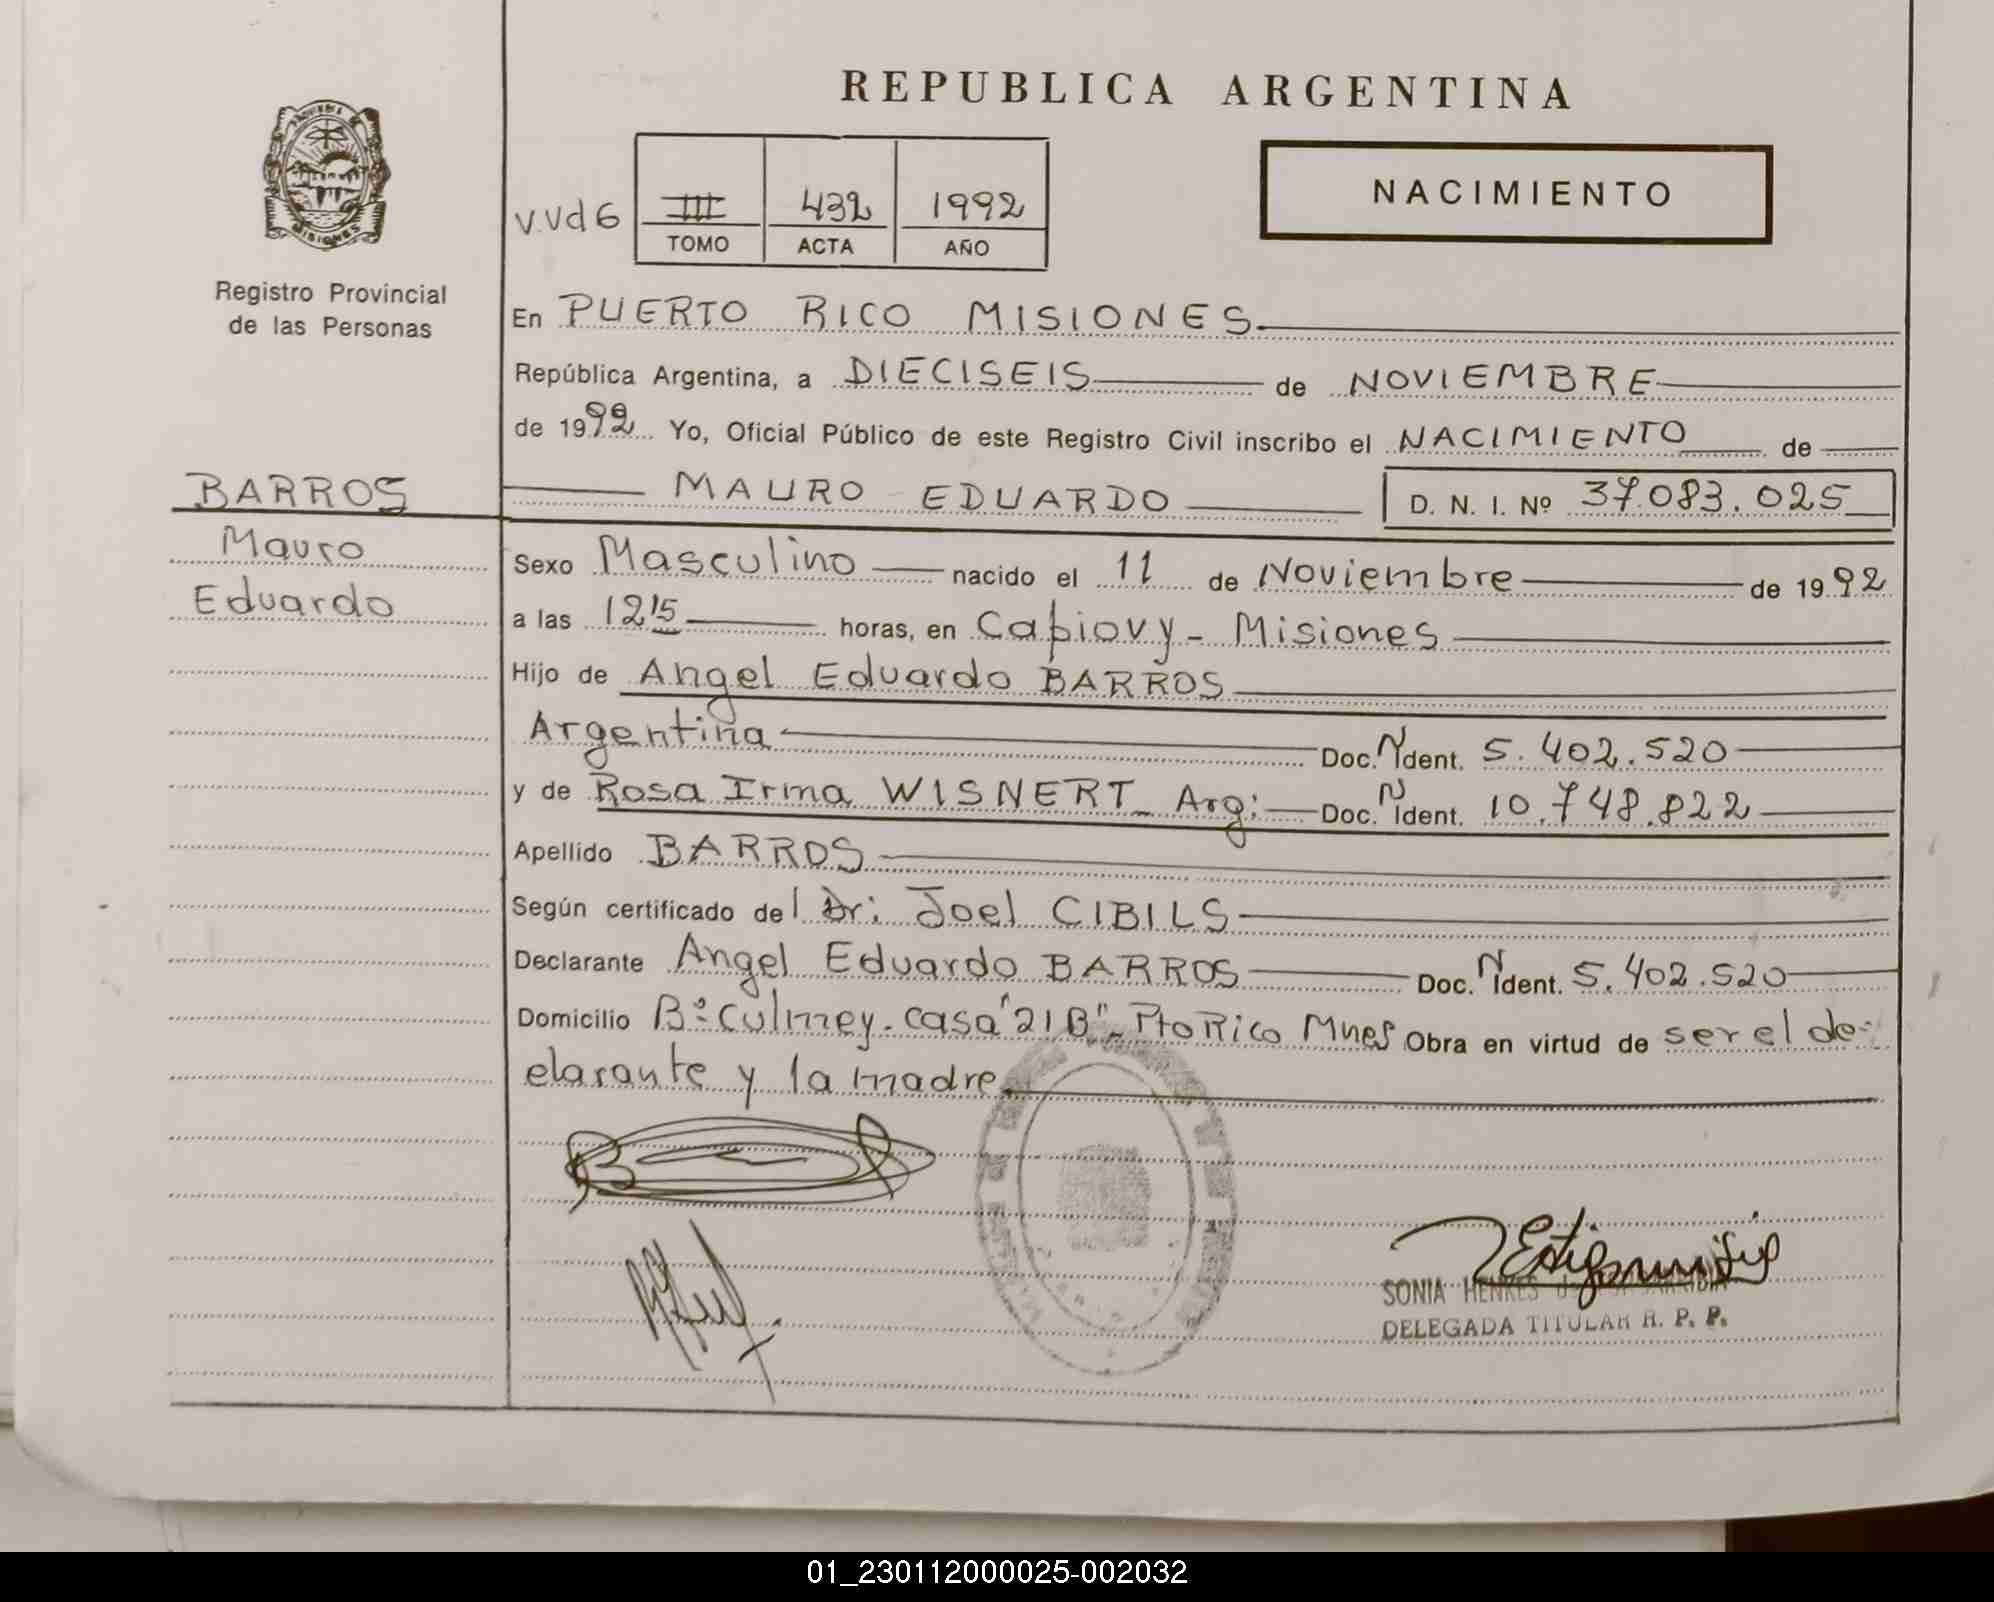 REPUBLICA ARGENTINA
NACIMIENTO
V.Vd6 III 432 1992
TOMO ACTA AÑO
MISIONES
Registro Provincial
de las Personas
En PUERTO RICO MISIONES
República Argentina, a DIECISEIS de NOVIEMBRE
de 1992 Yo, Oficial Público de este Registro Civil inscribo el NACIMIENTO de
BARROS
MAURO EDUARDO D. N. I. Nº 37.083.025
Mauro
Eduardo
Sexo Masculino nacido el 11 de Noviembre de 1992
a las 1215 horas, en Capiovy - Misiones
Hijo de Angel Eduardo BARROS
Argentina Doc. N Ident. 5.402.520
y de Rosa Irma WISNERT Arg: Doc. N Ident. 10.748.822
Apellido BARROS
Según certificado del Dr: Joel CIBILS
Declarante Angel Eduardo BARROS Doc. N Ident. 5.402.520
Domicilio Bº Culmey - casa "21B" - Pto Rico Mnes Obra en virtud de ser el de-
clarante y la madre
SONIA HENKES
DELEGADA TITULAR R. P. P.
01_230112000025-002032